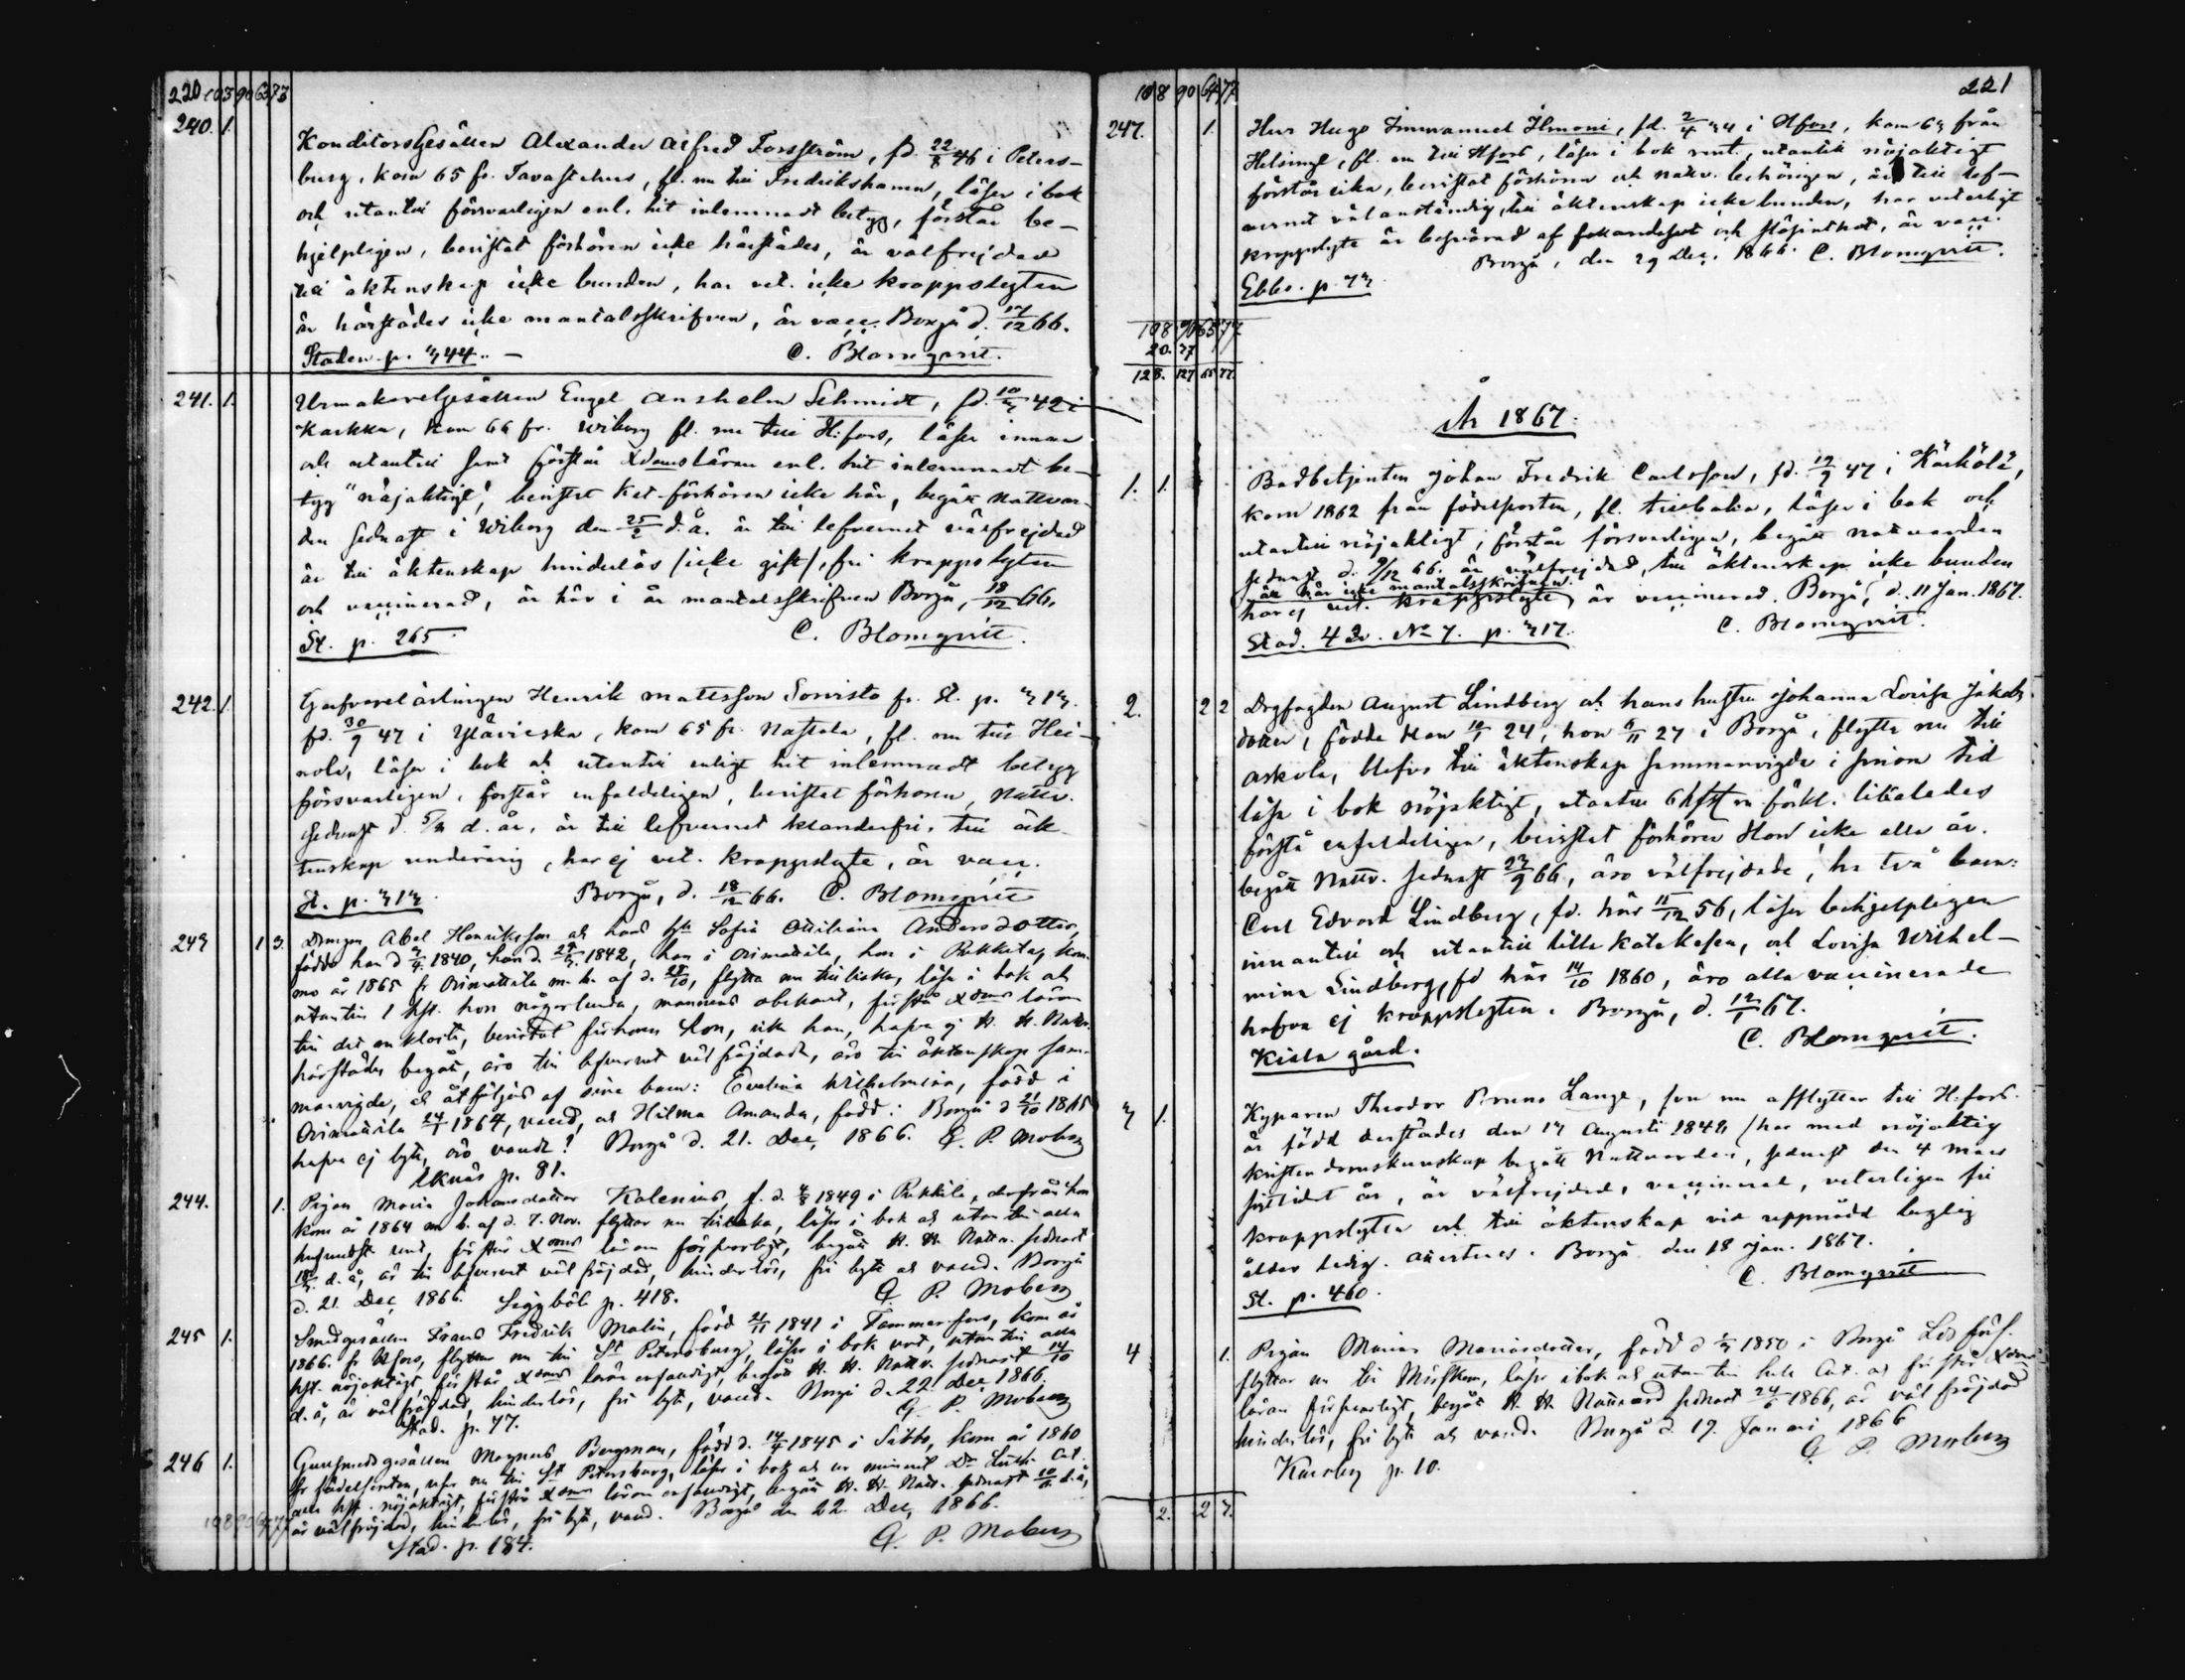 220 103 90 63 73
240. 1.
Konditorsgesällen Alexander Alfred Forsström, fd. 22/8 46 i Peters-
burg, kom 65 fr. Tavastehus, fl. nu till Fredrikshamn, läser i bok
och utantill försvarligen enl. hit inlemnadt betyg, förstår be-
hjelpligen, bevistat förhören icke härstädes, är välfrejdad
till äktenskap icke bunden, har vet. icke kroppslyten
är härstädes icke mantalsskrifven, är vacc. Borgå d. 17/12 66.
Staden p. 344. C. Blomqvist.
241. 1.
Urmakaregesällen Engel Anshelm Schmidt, fd. 42 i
kom 66 fr. Wiborg fl. nu till H:fors, läser innan
och utantill samt förstår Xdomsläran enl. hit inlemnadt be-
tyg "nöjaktigt", bevistat kat-förhören icke här, begått nattvar-
den sednast i Wiborg den 25/2 d. å. är till lefvernet välfrejdad
är till äktenskap hinderlös (icke gift), fri kroppslyten
och vaccinerad, är här i år mantalsskrifven Borgå, 18/12 66.
St. p. 265 C. Blomqvist.
242. 1.
Garfvarelärlingen Henrik Mattsson Sorvisto fr. St. p. 313.
fd. 30/9 47 i kom 65 fr. Nastola, fl. nu till Hei-
nola, läser i bok och utantill enligt hit inlemnadt betyg
försvarligen, förstår enfaldeligen, bevistat förhören, Nattv.
sednast d. d. år, är till lefvernet klanderfri, till äk-
tenskap underårig, har ej vet. kroppslyte, är vacc.
St. p. 313. Borgå, d. 18/12 66. C. Blomqvist
243 1 3.
Drengen Abel Henriksson och hans h:u Sofia Ottiliana Andersdotter,
födde han d 1840, hon d. 1842, han i Orimattila, hon i Pukkila, kom-
mo år 1865 fr Orimattila m. b. af d. flytta nu tillbaka, läsa i bok och
utantill 1 hfst. hon någorlunda, mannen obekant, förstå Xdoms läran
till det enklaste, bevistat förhören hon, icke han, hafva ej H. H. Nattv.
härstädes begått, äro till lefvernet välfräjdade, äro till äktenskap sam-
manvigde, och åtföljas af sine barn: Evelina Wilhelmina, född i
Orimattila 24/1 1864, vaccd, och Hilma Amanda, född i Borgå d 21/10 1865
hafva ej lyte, äro vaccd? Borgå d. 21. Dec. 1866. G. P. Moberg
p. 81.
244. 1.
Pigan Maria Johansdotter Kalenius, f. d. 4/8 1849 i Pukkila, derfrån hon
kom år 1864 m b. af d. 7. Nov. flyttar nu tillbaka, läser i bok och utantill alla
hufvudst. rent, förstår Xdoms läran försvarligt, begått H. H. Nattv. sednast
d. å, är till lefvernet välfräjdad, hinderlös, fri lyte och vaccd. Borgå
d. 21 Dec 1866. Seggböle p. 418. G. P. Moberg
245 1.
Smedgesällen Frans Fredrik Malin, född 21/11 1841 i Tammerfors, kom år
1866. fr Hfors, flyttar nu till St Petersburg, läser i bok rent, utantill alla
hft. nöjaktigt, förstår Xdoms läran enfaldigt, begått H. H. Nattv. sednast 14/10
d. å, är välfräjdad, hinderlös, fri lyte, vaccd. Borgå d. 22 Dec. 1866.
Stad. p. 77. G. P. Moberg
246 1.
Gullsmedsgesällen Magnus Bergman, född d. 14/4 1845 i Sibbo, kom år 1860
fr födelseorten, nu till St Petersburg, läser i bok och ur minnet Dr Luth. Cat.
alla hft. nöjaktigt, förstår Xdoms läran enfaldigt, begått H. H. Nattv. sednast d. å,
är välfräjdad, hinderlös, fri lyte, vaccd. Borgå den 22. Dec. 1866.
Stad. p. 184. G. P. Moberg
108 90 64 77
108 90 64 77 221
247. 1.
Herr Hugo Immanuel Ilmoni, fd. 2/4 i Hfors, kom 63 från
Helsinge, fl. nu till Hfors, läser i bok rent, utantill nöjaktigt
förstår lika, bevistat förhören och nattv. behörigen, är till lef-
vernet välanständig, till äktenskap icke bunden, har veterligt
kroppslyte är besvärad af och är vacc.
Borgå, den 29 Dec. 1866. C. Blomqvist.
Ebbo. p. 73
108 90 65 77
20. 37
128. 127 65 77.
År 1867.
1. 1.
Badbetjenten Johan Fredrik Carlsson, fd. 47 i Kärkölä,
kom 1862 från födelseorten, fl. tillbaka, läser i bok och
utantill nöjaktigt, förstår försvarligen, begått nattvarden
sednast d. 9/12 66. är välfrejdad, till äktenskap icke bunden
är här icke mantalsskrifven
har ej vet. kroppslyte, är vaccinerad. Borgå, d. 11 Jan. 1867.
Stad. 4 No 7. p. 317. C. Blomqvist.
2. 2 2
August Lindberg och hans hustru Johanna Lovisa Jakobs-
dotter, födde Han 24, hon 6/11 27 i Borgå, flytta nu till
Askola, blefvo till äktenskap sammanvigde i sinom tid
läsa i bok nöjaktigt, utantill 6 hfst m förkl. likaledes
förstå enfaldeligen, bevistat förhören Hon icke alla år.
begått Nattv. sednast 23/9 66, äro välfrejdade, ha två barn:
Carl Edvard Lindberg, fd. här 11/12 56, läser behjelpligen
innantill och utantill lilla katekesen, och Lovisa Wilhel-
mina Lindberg, fd här 14/10 1860, äro alla vaccinerade
hafva ej kroppslyten. Borgå, d. 67.
Kiala gård. C. Blomqvist.
3 1.
Kyparen Theodor Bruno Lange, som nu afflyttar till H:fors.
är född derstädes den 13 Augusti 1842, har med nöjaktig
kristendomskunskap begått Nattvarden, sednast den 4 mars
sistlidet år, är välfrejdad, vaccinerad, veterligen fri
kroppslyten och till äktenskap vid uppnådd laglig
ålder ledig. Attesteras. Borgå den 18 Jan. 1867.
St. p. 460. C. Blomqvist
4 1.
Pigan Maria Mariasdotter, född d 1850 i Borgå Lds förs.
flyttar nu till läser i bok och utantill hela Cat. och förstår Xdoms
läran försvarligt, begått H. H. Nattvard sednast 24/6 1866, är välfräjdad
hinderlös, fri lyte och vaccd. Borgå d. 19. Januari 1866
p. 10. G. P. Moberg
2. 2 3.